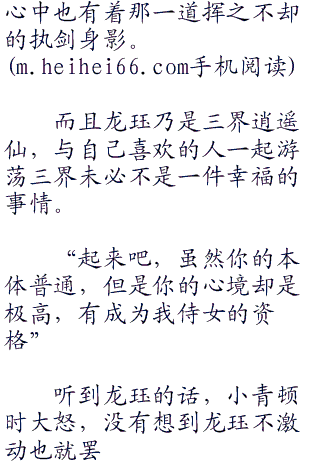 心中也有着那一道挥之不却
的执剑身影。
(m.heihei66.com手机阅读)
而且龙珏乃是三界逍遥
仙，与自己喜欢的人一起游
荡三界未必不是一件幸福的
事情。
“起来吧，虽然你的本
体普通，但是你的心境却是
极高，有成为我侍女的资
格”
听到龙珏的话，小青顿
时大怒，没有想到龙珏不激
动也就罢